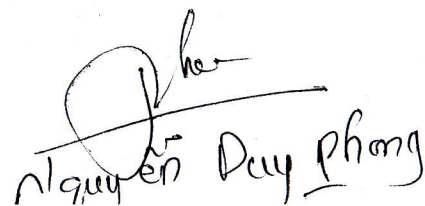 Nguyễn Duy Phong